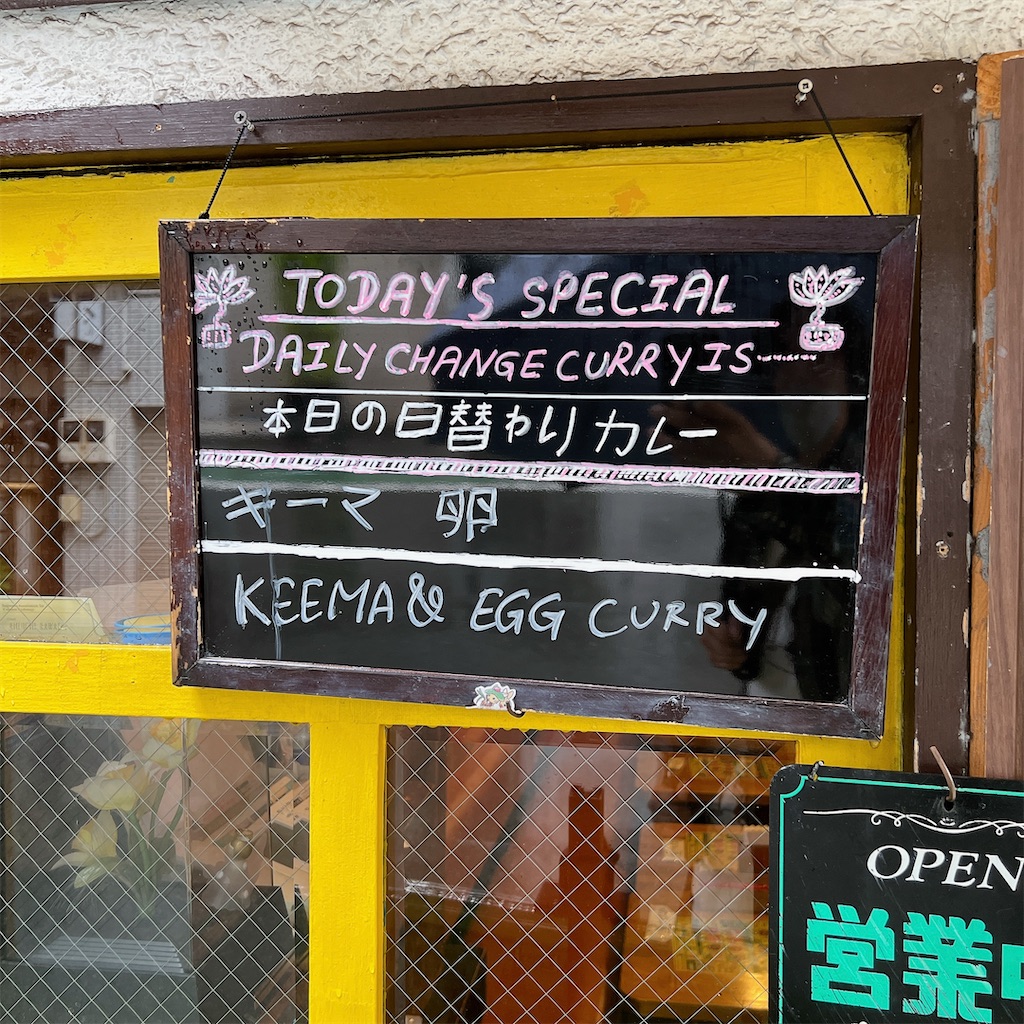 TODAY'S SPECIAL
DAILY CHANGE CURRY IS------
本日の日替わりカレー
キーマ 卵
KEEMA & EGG CURRY
OPEN
営業中